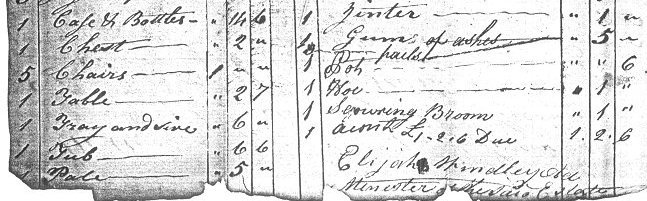 1 Case & Bottles — " 14 6
1 Chest — " 2 "
5 Chairs — 1 " "
1 Table — " 2 7
1 Tray and " 6 "
1 Tub — " 6 6
1 Pale — " 5 "
1 — " 1 "
1 Gum of ashes — " 5 "
pails
1 Pot " " 6
1 Hoe — " 1 "
1 Scouring Broom " 1 "
1 £1-2-6 Due 1. 2. 6
Elijah
Minester Estate